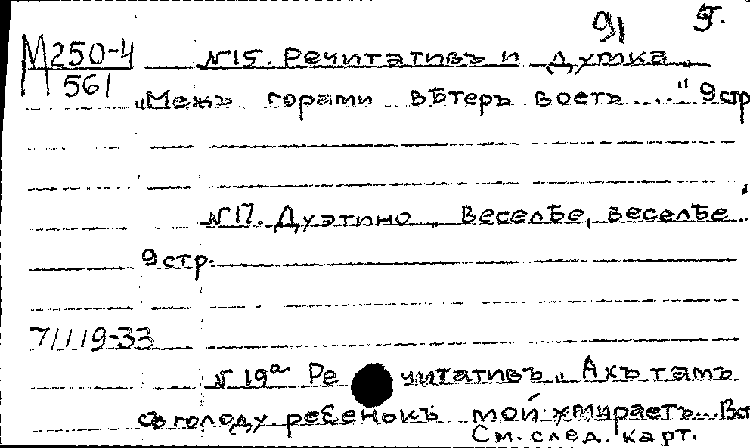 91 5.
М 250-4
561
№15. Речитативъ и Думка
„Межъ горами вѣтеръ воетъ...." 9 стр
№17. Дуэтино „Веселѣе, веселѣе"
9 стр.
71119-33
№19а Речитативъ „Ахъ тамъ
съ голоду ребенокъ мой умираетъ...
См. след. карт.